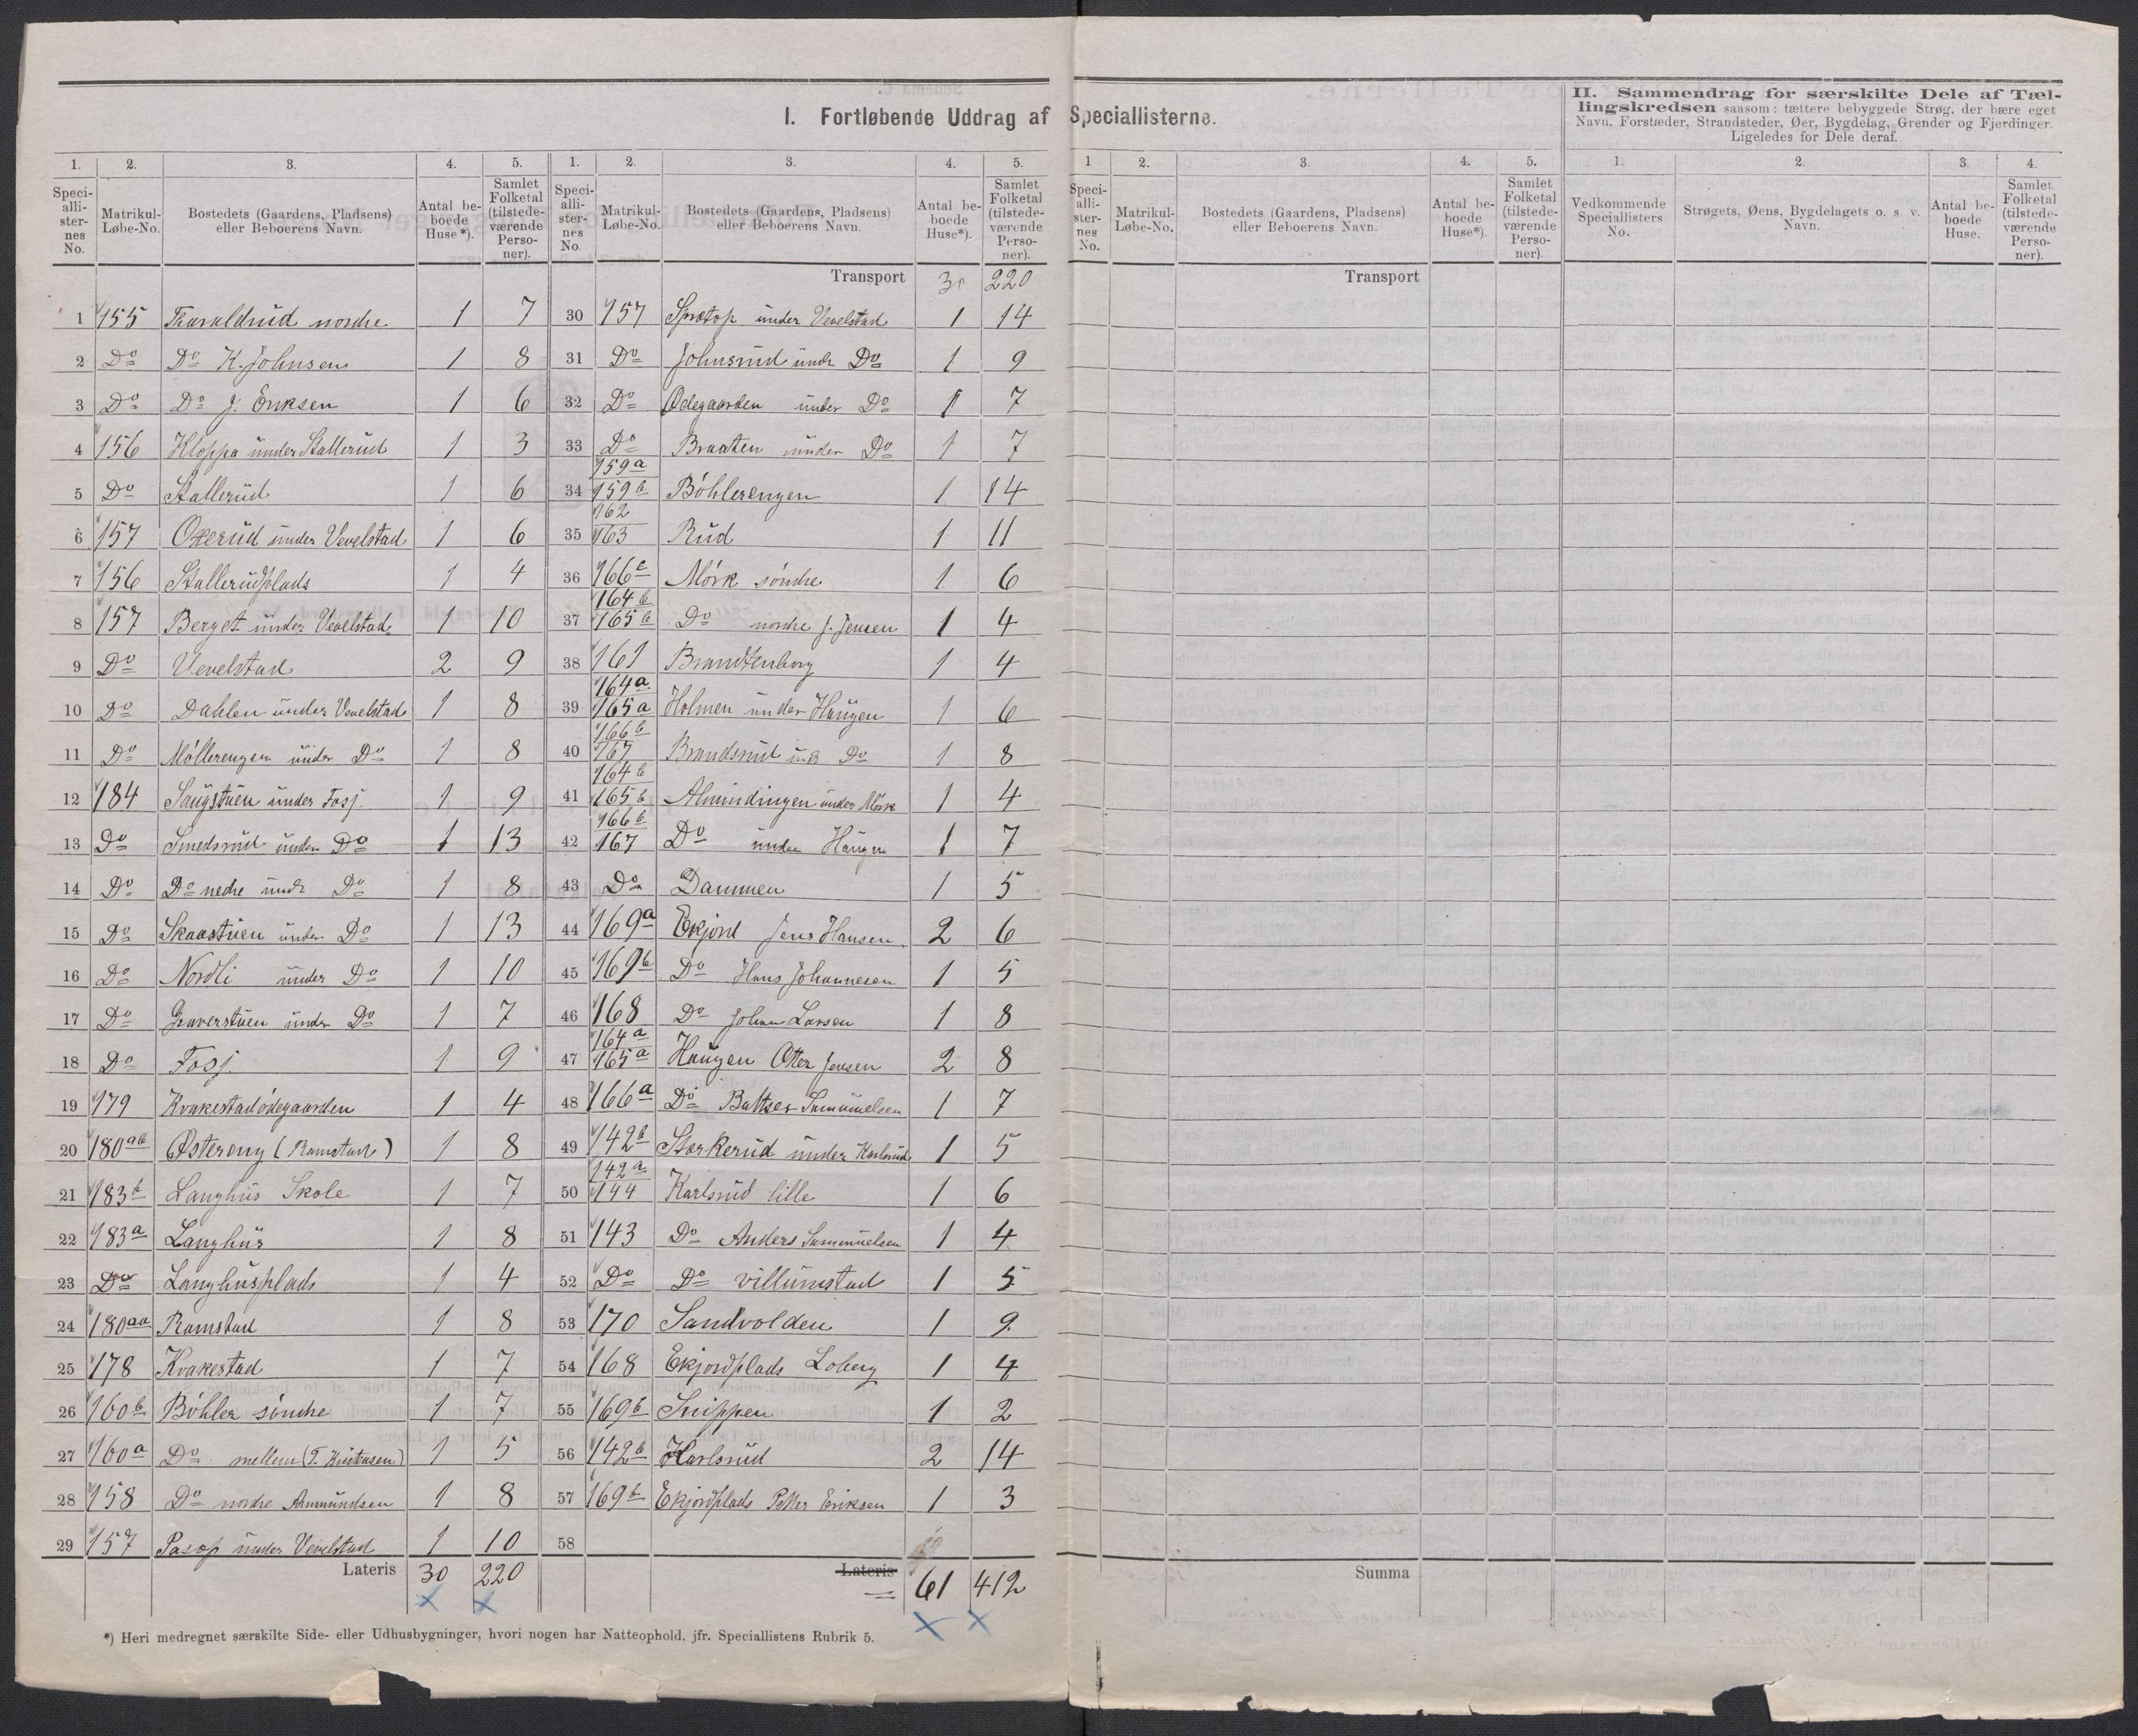 I. Fortløbende Uddrag af Speciallisterne.
II. Sammendrag for særskilte Dele af Tæl-
lingskredsen saasom: tættere bebyggede Strøg, der bære eget
Navn, Forstæder, Strandsteder, Øer, Bygdelag, Grender og Fjerdinger.
Ligeledes for Dele deraf.
1. 2. 3. 4. 5. 1. 2. 3. 4. 5. 1 2. 3. 4. 5. 1. 2. 3. 4.
Speciallisternes No. Matrikul-Løbe-No. Bostedets (Gaardens, Pladsens) eller Beboerens Navn. Antal beboede Huse*). Samlet Folketal (tilstedeværende Personer).
Speciallisternes No. Matrikul-Løbe-No. Bostedets (Gaardens, Pladsens) eller Beboerens Navn. Antal beboede Huse*). Samlet Folketal (tilstedeværende Personer).
Speciallisternes No. Matrikul-Løbe-No. Bostedets (Gaardens, Pladsens) eller Beboerens Navn. Antal beboede Huse*). Samlet Folketal (tilstedeværende Personer).
Vedkommende Speciallisters No. Strøgets, Øens, Bygdelagets o. s. v. Navn. Antal beboede Huse. Samlet Folketal (tilstedeværende Personer).
1 155 Tharaldrud nordre 1 7
2 Do Do K. Johnsen 1 8
3 Do Do J. Eriksen 1 6
4 156 Kloppa under Stallerud 1 3
5 Do Stallerud 1 6
6 157 Otterud under Vevelstad 1 6
7 156 Stallerudplads 1 4
8 157 Berget under Vevelstad 1 10
9 Do Vevelstad 2 9
10 Do Dahlen under Vevelstad 1 8
11 Do Møllerengen under Do 1 8
12 184 Saugstuen under Fosj 1 9
13 Do Smedsrud under Do 1 13
14 Do Do nedre undr Do 1 8
15 Do Skaastuen under Do 1 13
16 Do Nordli under Do 1 10
17 Do Graverstuen under Do 1 7
18 Do Fosj 1 9
19 179 Kvakestadødegaarden 1 4
20 180ab Østereng (Ramstad) 1 8
21 183b Langhus Skole 1 7
22 183a Langhus 1 8
23 Do Langhusplads 1 4
24 180aa Ramstad 1 8
25 178 Kvakestad 1 7
26 160b Bøhler søndre 1 7
27 160a Do mellem (T. Kristensen) 1 5
28 158 Do nordre Amundsen 1 8
29 157 Pasop under Vevelstad 1 10
Lateris 30 220
Transport 30 220
30 157 Sprætop under Vevelstad 1 14
31 Do Johnsrud undr Do 1 9
32 Do Ødegaarden under Do 1 7
33 Do Braaten under Do 1 7
34 159a 159b Bøhlerengen 1 14
35 162 163 Rud 1 11
36 166c Mørk søndre 1 6
37 164b 165b Do nordre J. Jensen 1 4
38 161 Brandtenborg 1 4
39 164a 165a Holmen under Haugen 1 6
40 166b 167 Brandsrud undr Do 1 8
41 164b 165b Almindingen under Mørk 1 4
42 166b 167 Do under Haugen 1 7
43 Do Dammen 1 5
44 169a Ekjord Jens Hansen 2 6
45 169b Do Hans Johannesen 1 5
46 168 Do Johan Larsen 1 8
47 164a 165a Haugen Otter Jensen 2 8
48 166a Do Baltser Sammuelsen 1 7
49 142b Storkerud under Karlsrud 1 5
50 142a 144 Karlsrud lille 1 6
51 143 Do Anders Sammuelsen 1 4
52 Do Do Villumstad 1 5
53 170 Sandvolden 1 9
54 168 Ekjordplads Loberg 1 4
55 169b Snippen 1 2
56 142b Karlsrud 2 14
57 169b Ekjordplads Petter Eriksen 1 3
58
Lateris = 61 412
Transport
Summa
*) Heri medregnet særskilte Side- eller Udhusbygninger, hvori nogen har Natteophold, jfr. Speciallistens Rubrik 5.